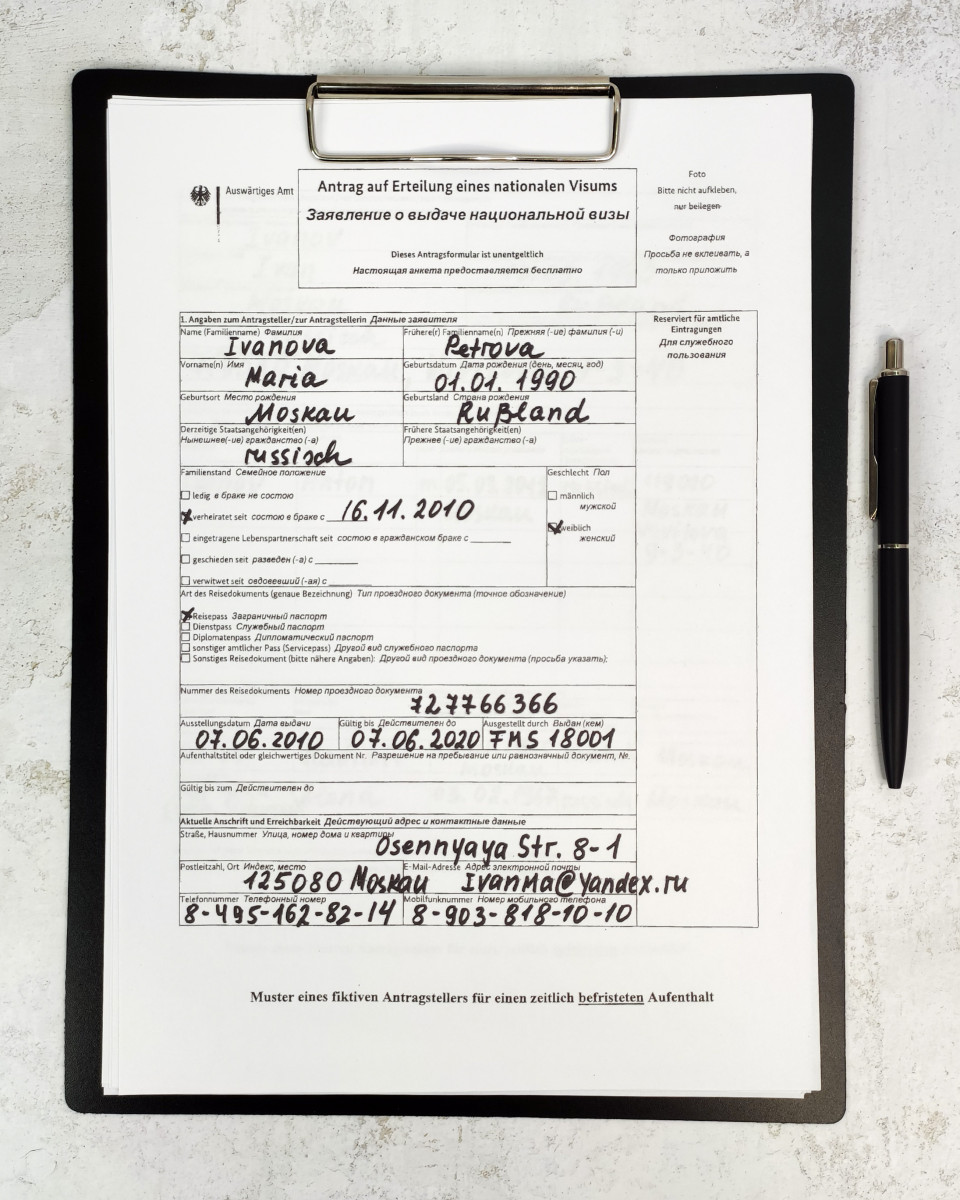 Auswärtiges Amt
Antrag auf Erteilung eines nationalen Visums
Заявление о выдаче национальной визы
Dieses Antragsformular ist unentgeltlich
Настоящая анкета предоставляется бесплатно
Foto
Bitte nicht aufkleben,
nur beilegen
Фотография
Просьба не вклеивать, а
только приложить
1. Angaben zum Antragsteller/zur Antragstellerin Данные заявителя
Reserviert für amtliche
Eintragungen
Для служебного
пользования
Name (Familienname) Фамилия
Ivanova
Frühere(r) Familienname(n) Прежняя (-ие) фамилия (-и)
Petrova
Vorname(n) Имя
Maria
Geburtsdatum Дата рождения (день, месяц, год)
01.01.1990
Geburtsort Место рождения
Moskau
Geburtsland Страна рождения
Rußland
Derzeitige Staatsangehörigkeit(en)
Нынешнее(-ие) гражданство (-а)
russisch
Frühere Staatsangehörigkeit(en)
Прежнее (-ие) гражданство (-а)
Familienstand Семейное положение
ledig в браке не состою
verheiratet seit состою в браке с 16.11.2010
eingetragene Lebenspartnerschaft seit состою в гражданском браке с
geschieden seit разведен (-а) с
verwitwet seit овдовевший (-ая) с
Geschlecht Пол
männlich
мужской
weiblich
женский
Art des Reisedokuments (genaue Bezeichnung) Тип проездного документа (точное обозначение)
Reisepass Заграничный паспорт
Dienstpass Служебный паспорт
Diplomatenpass Дипломатический паспорт
sonstiger amtlicher Pass (Servicepass) Другой вид служебного паспорта
Sonstiges Reisedokument (bitte nähere Angaben): Другой вид проездного документа (просьба указать):
Nummer des Reisedokuments Номер проездного документа
727766366
Ausstellungsdatum Дата выдачи
07.06.2010
Gültig bis Действителен до
07.06.2020
Ausgestellt durch Выдан (кем)
FMS 18001
Aufenthaltstitel oder gleichwertiges Dokument Nr. Разрешение на пребывание или равнозначный документ, №.
Gültig bis zum Действителен до
Aktuelle Anschrift und Erreichbarkeit Действующий адрес и контактные данные
Straße, Hausnummer Улица, номер дома и квартиры
Osennyaya Str. 8-1
Postleitzahl, Ort Индекс, место
125080 Moskau
E-Mail-Adresse Адрес электронной почты
IvanMa@yandex.ru
Telefonnummer Телефонный номер
8-495-162-82-14
Mobilfunknummer Номер мобильного телефона
8-903-818-10-10
Muster eines fiktiven Antragstellers für einen zeitlich befristeten Aufenthalt